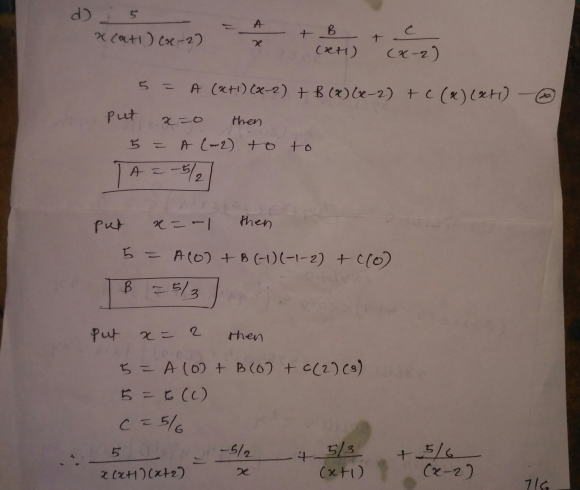 d) 5/(x(x+1)(x-2)) = A/x + B/(x+1) + C/(x-2)
5 = A(x+1)(x-2) + B(x)(x-2) + C(x)(x+1) —
Put x=0 then
5 = A(-2) +0 +0
A = -5/2
Put x=-1 then
5 = A(0) + B(-1)(-1-2) + C(0)
B = 5/3
Put x= 2 then
5 = A(0) + B(0) + C(2)(3)
5 = 6(C)
C = 5/6
∴ 5/(x(x+1)(x+2)) = (-5/2)/x + (5/3)/(x+1) + (5/6)/(x-2)
7/6